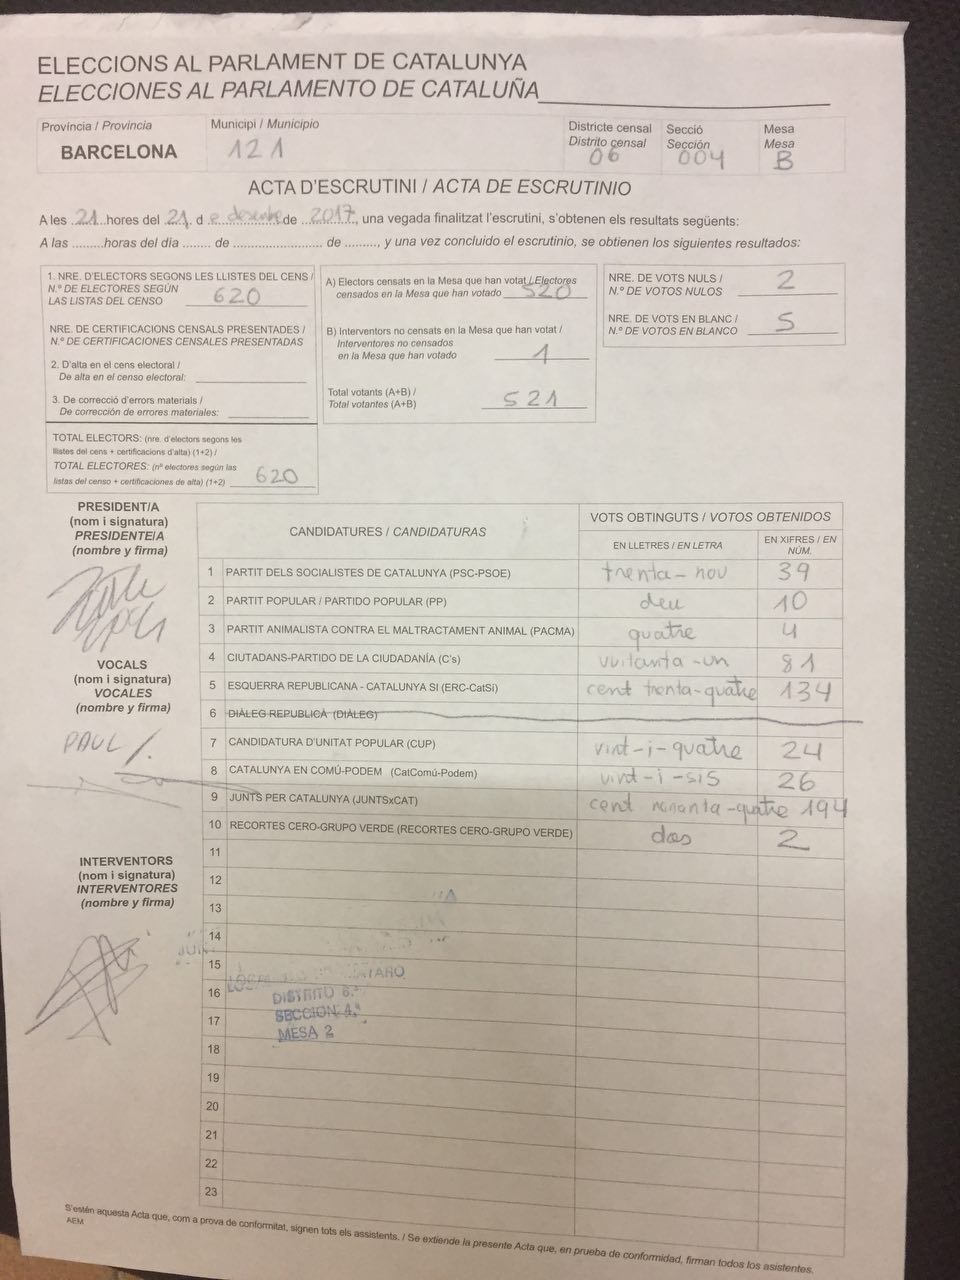 ELECCIONS AL PARLAMENT DE CATALUNYA
ELECCIONES AL PARLAMENTO DE CATALUÑA
Província / Provincia
BARCELONA
Municipi / Municipio
121
Districte censal
Distrito censal
06
Secció
Sección
004
Mesa
Mesa
B
ACTA D'ESCRUTINI / ACTA DE ESCRUTINIO
A les 21 hores del 21, d e desembre de 2017, una vegada finalitzat l'escrutini, s'obtenen els resultats següents:
A las .........horas del día ....... de ...................... de ........., y una vez concluido el escrutinio, se obtienen los siguientes resultados:
1. NRE. D'ELECTORS SEGONS LES LLISTES DEL CENS /
N.º DE ELECTORES SEGÚN
LAS LISTAS DEL CENSO 620
NRE. DE CERTIFICACIONS CENSALS PRESENTADES /
N.º DE CERTIFICACIONES CENSALES PRESENTADAS
2. D'alta en el cens electoral /
De alta en el censo electoral:
3. De correcció d'errors materials /
De corrección de errores materiales:
TOTAL ELECTORS: (nre. d'electors segons les
llistes del cens + certificacions d'alta) (1+2) /
TOTAL ELECTORES: (nº electores según las
listas del censo + certificaciones de alta) (1+2) 620
A) Electors censats en la Mesa que han votat / Electores
censados en la Mesa que han votado 520
B) Interventors no censats en la Mesa que han votat /
Interventores no censados
en la Mesa que han votado 1
Total votants (A+B) /
Total votantes (A+B) 521
NRE. DE VOTS NULS /
N.º DE VOTOS NULOS 2
NRE. DE VOTS EN BLANC /
N.º DE VOTOS EN BLANCO 5
PRESIDENT/A
(nom i signatura)
PRESIDENTE/A
(nombre y firma)
VOCALS
(nom i signatura)
VOCALES
(nombre y firma)
PAUL
INTERVENTORS
(nom i signatura)
INTERVENTORES
(nombre y firma)
CANDIDATURES / CANDIDATURAS
VOTS OBTINGUTS / VOTOS OBTENIDOS
EN LLETRES / EN LETRA
EN XIFRES / EN
NÚM.
1 PARTIT DELS SOCIALISTES DE CATALUNYA (PSC-PSOE) trenta-nou 39
2 PARTIT POPULAR / PARTIDO POPULAR (PP) deu 10
3 PARTIT ANIMALISTA CONTRA EL MALTRACTAMENT ANIMAL (PACMA) quatre 4
4 CIUTADANS-PARTIDO DE LA CIUDADANÍA (C's) vuitanta-un 81
5 ESQUERRA REPUBLICANA - CATALUNYA SI (ERC-CatSí) cent trenta-quatre 134
6 DIÀLEG REPUBLICÀ (DIÀLEG)
7 CANDIDATURA D'UNITAT POPULAR (CUP) vint-i-quatre 24
8 CATALUNYA EN COMÚ-PODEM (CatComú-Podem) vint-i-sis 26
9 JUNTS PER CATALUNYA (JUNTSxCAT) cent noranta-quatre 194
10 RECORTES CERO-GRUPO VERDE (RECORTES CERO-GRUPO VERDE) dos 2
11
12
13
14
15
16
17
18
19
20
21
22
23
MATARO
DISTRITO 6.º
SECCION 4.ª
MESA 2
S'estén aquesta Acta que, com a prova de conformitat, signen tots els assistents. / Se extiende la presente Acta que, en prueba de conformidad, firman todos los asistentes.
AEM